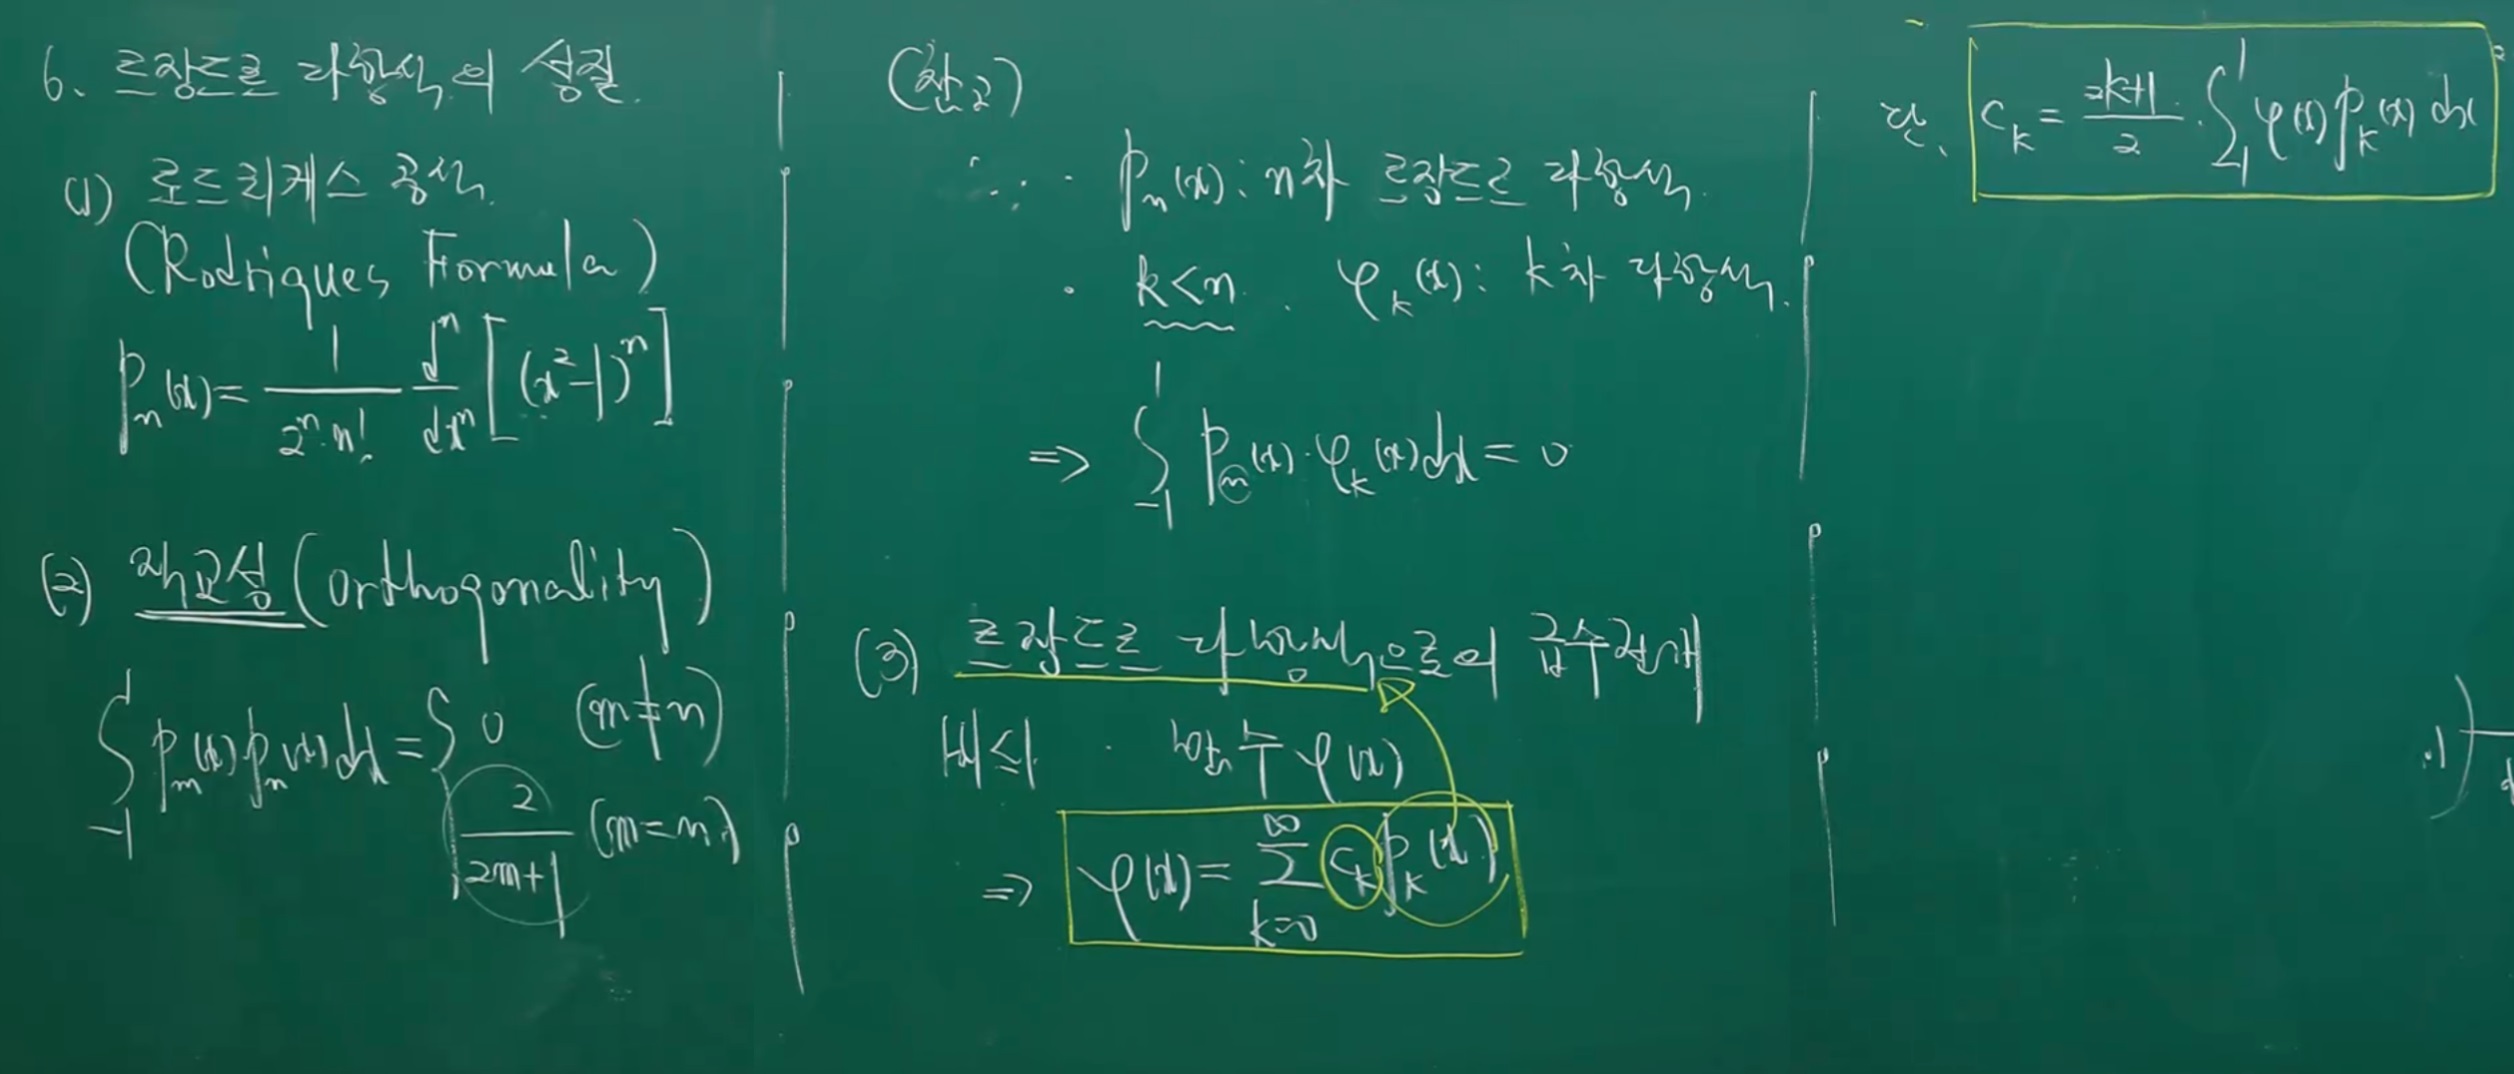 6. 르장드르 다항식의 성질.
(1) 로드리게스 공식.
(Rodrigues Formula)
Pₙ(x) = 1/(2ⁿ·n!) dⁿ/dxⁿ [(x²-1)ⁿ]
(2) 직교성 (orthogonality)
∫₋₁¹ Pₘ(x) Pₙ(x) dx = { 0 (m≠n)
2/(2m+1) (m=n)
(참고)
· Pₙ(x) : n차 르장드르 다항식.
· k<n. φₖ(x) : k차 다항식.
=> ∫₋₁¹ Pₙ(x)·φₖ(x) dx = 0
(3) 르장드르 다항식으로의 급수전개
|x|≤1 · 함수 φ(x)
=> φ(x) = ∑ₖ₌₀^∞ cₖ Pₖ(x)
단, cₖ = (2k+1)/2 · ∫₋₁¹ φ(x) Pₖ(x) dx